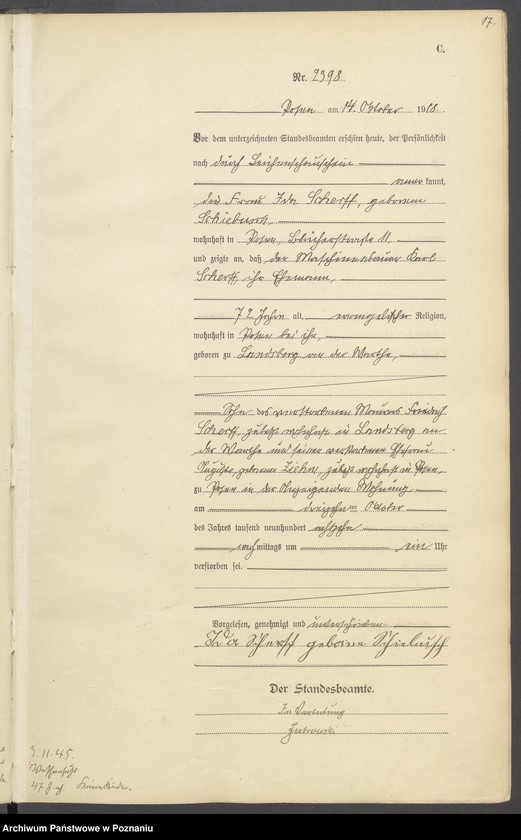 17.
C.
Nr. 2398
Posen am 14. Oktober 1918.
Vor dem unterzeichneten Standesbeamten erschien heute, der Persönlichkeit
nach durch Leichenschauschein
anerkannt,
die Frau Ida Scherff, geborene
wohnhaft in Posen, Blücherstrasse 11
und zeigte an, daß der Maschinenbauer Karl
Scherff, ihr Ehemann,
72 Jahre alt, evangelischer Religion,
wohnhaft in Posen bei ihr,
geboren zu Landsberg an der Warthe,
Sohn des verstorbenen Maurers Friedrich
Scherff, zuletzt wohnhaft in Landsberg an
der Warthe und seiner verstorbenen Ehefrau
Auguste, geborene Ziehm, zuletzt wohnhaft in Posen,
zu Posen in der Wohnung
am dreizehnten Oktober
des Jahres tausend neunhundert achtzehn
nachmittags um ein Uhr
verstorben sei.
Vorgelesen, genehmigt und unterschrieben
Ida Scherff geborene
Der Standesbeamte.
In Vertretung
3.11.45.
47 J.
Archiwum Państwowe w Poznaniu